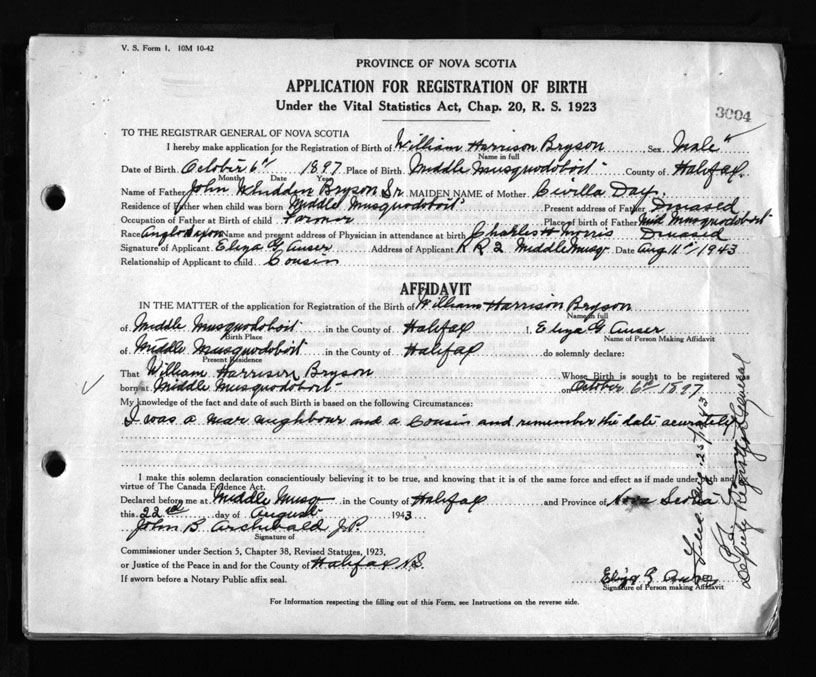 V. S. Form 1. 10M 10-42
PROVINCE OF NOVA SCOTIA
APPLICATION FOR REGISTRATION OF BIRTH
Under the Vital Statistics Act, Chap. 20, R. S. 1923
3004
TO THE REGISTRAR GENERAL OF NOVA SCOTIA
I hereby make application for the Registration of Birth of William Harrison Bryson Sex Male
Name in full
Date of Birth October 6th 1897 Place of Birth Middle Musquodoboit County of Halifax
Month Date Year
Name of Father John Bryson Sr MAIDEN NAME of Mother Cevilla Day
Residence of Father when child was born Middle Musquodoboit Present address of Father Deceased
Occupation of Father at Birth of child Farmer Place of birth of Father Mid Musquodoboit
Race Anglo Saxon Name and present address of Physician in attendance at birth Charles H Morris Deceased
Signature of Applicant Eliza G. Address of Applicant R R 2 Middle Musq Date Aug 11th 1943
Relationship of Applicant to child Cousin
AFFIDAVIT
IN THE MATTER of the application for Registration of the Birth of William Harrison Bryson
Name in full
of Middle Musquodoboit in the County of Halifax I, Eliza G.
Birth Place Name of Person Making Affidavit
of Middle Musquodoboit in the County of Halifax do solemnly declare:
Present Residence
That William Harrison Bryson Whose Birth is sought to be registered was
born at Middle Musquodoboit on October 6th 1897
My knowledge of the fact and date of such Birth is based on the following Circumstances:
I was a near neighbour and a Cousin and remember the date acurately
I make this solemn declaration conscientiously believing it to be true, and knowing that it is of the same force and effect as if made under oath and
virtue of The Canada Evidence Act.
Declared before me at Middle Musq in the County of Halifax and Province of Nova Scotia
this 22nd day of August 1943
John B Archibald J.P.
Signature of
Commissioner under Section 5, Chapter 38, Revised Statutes, 1923,
or Justice of the Peace in and for the County of Halifax N.S.
If sworn before a Notary Public affix seal.
Eliza G
Signature of Person making Affidavit
For Information respecting the filling out of this Form, see Instructions on the reverse side.
Deputy Registrar General